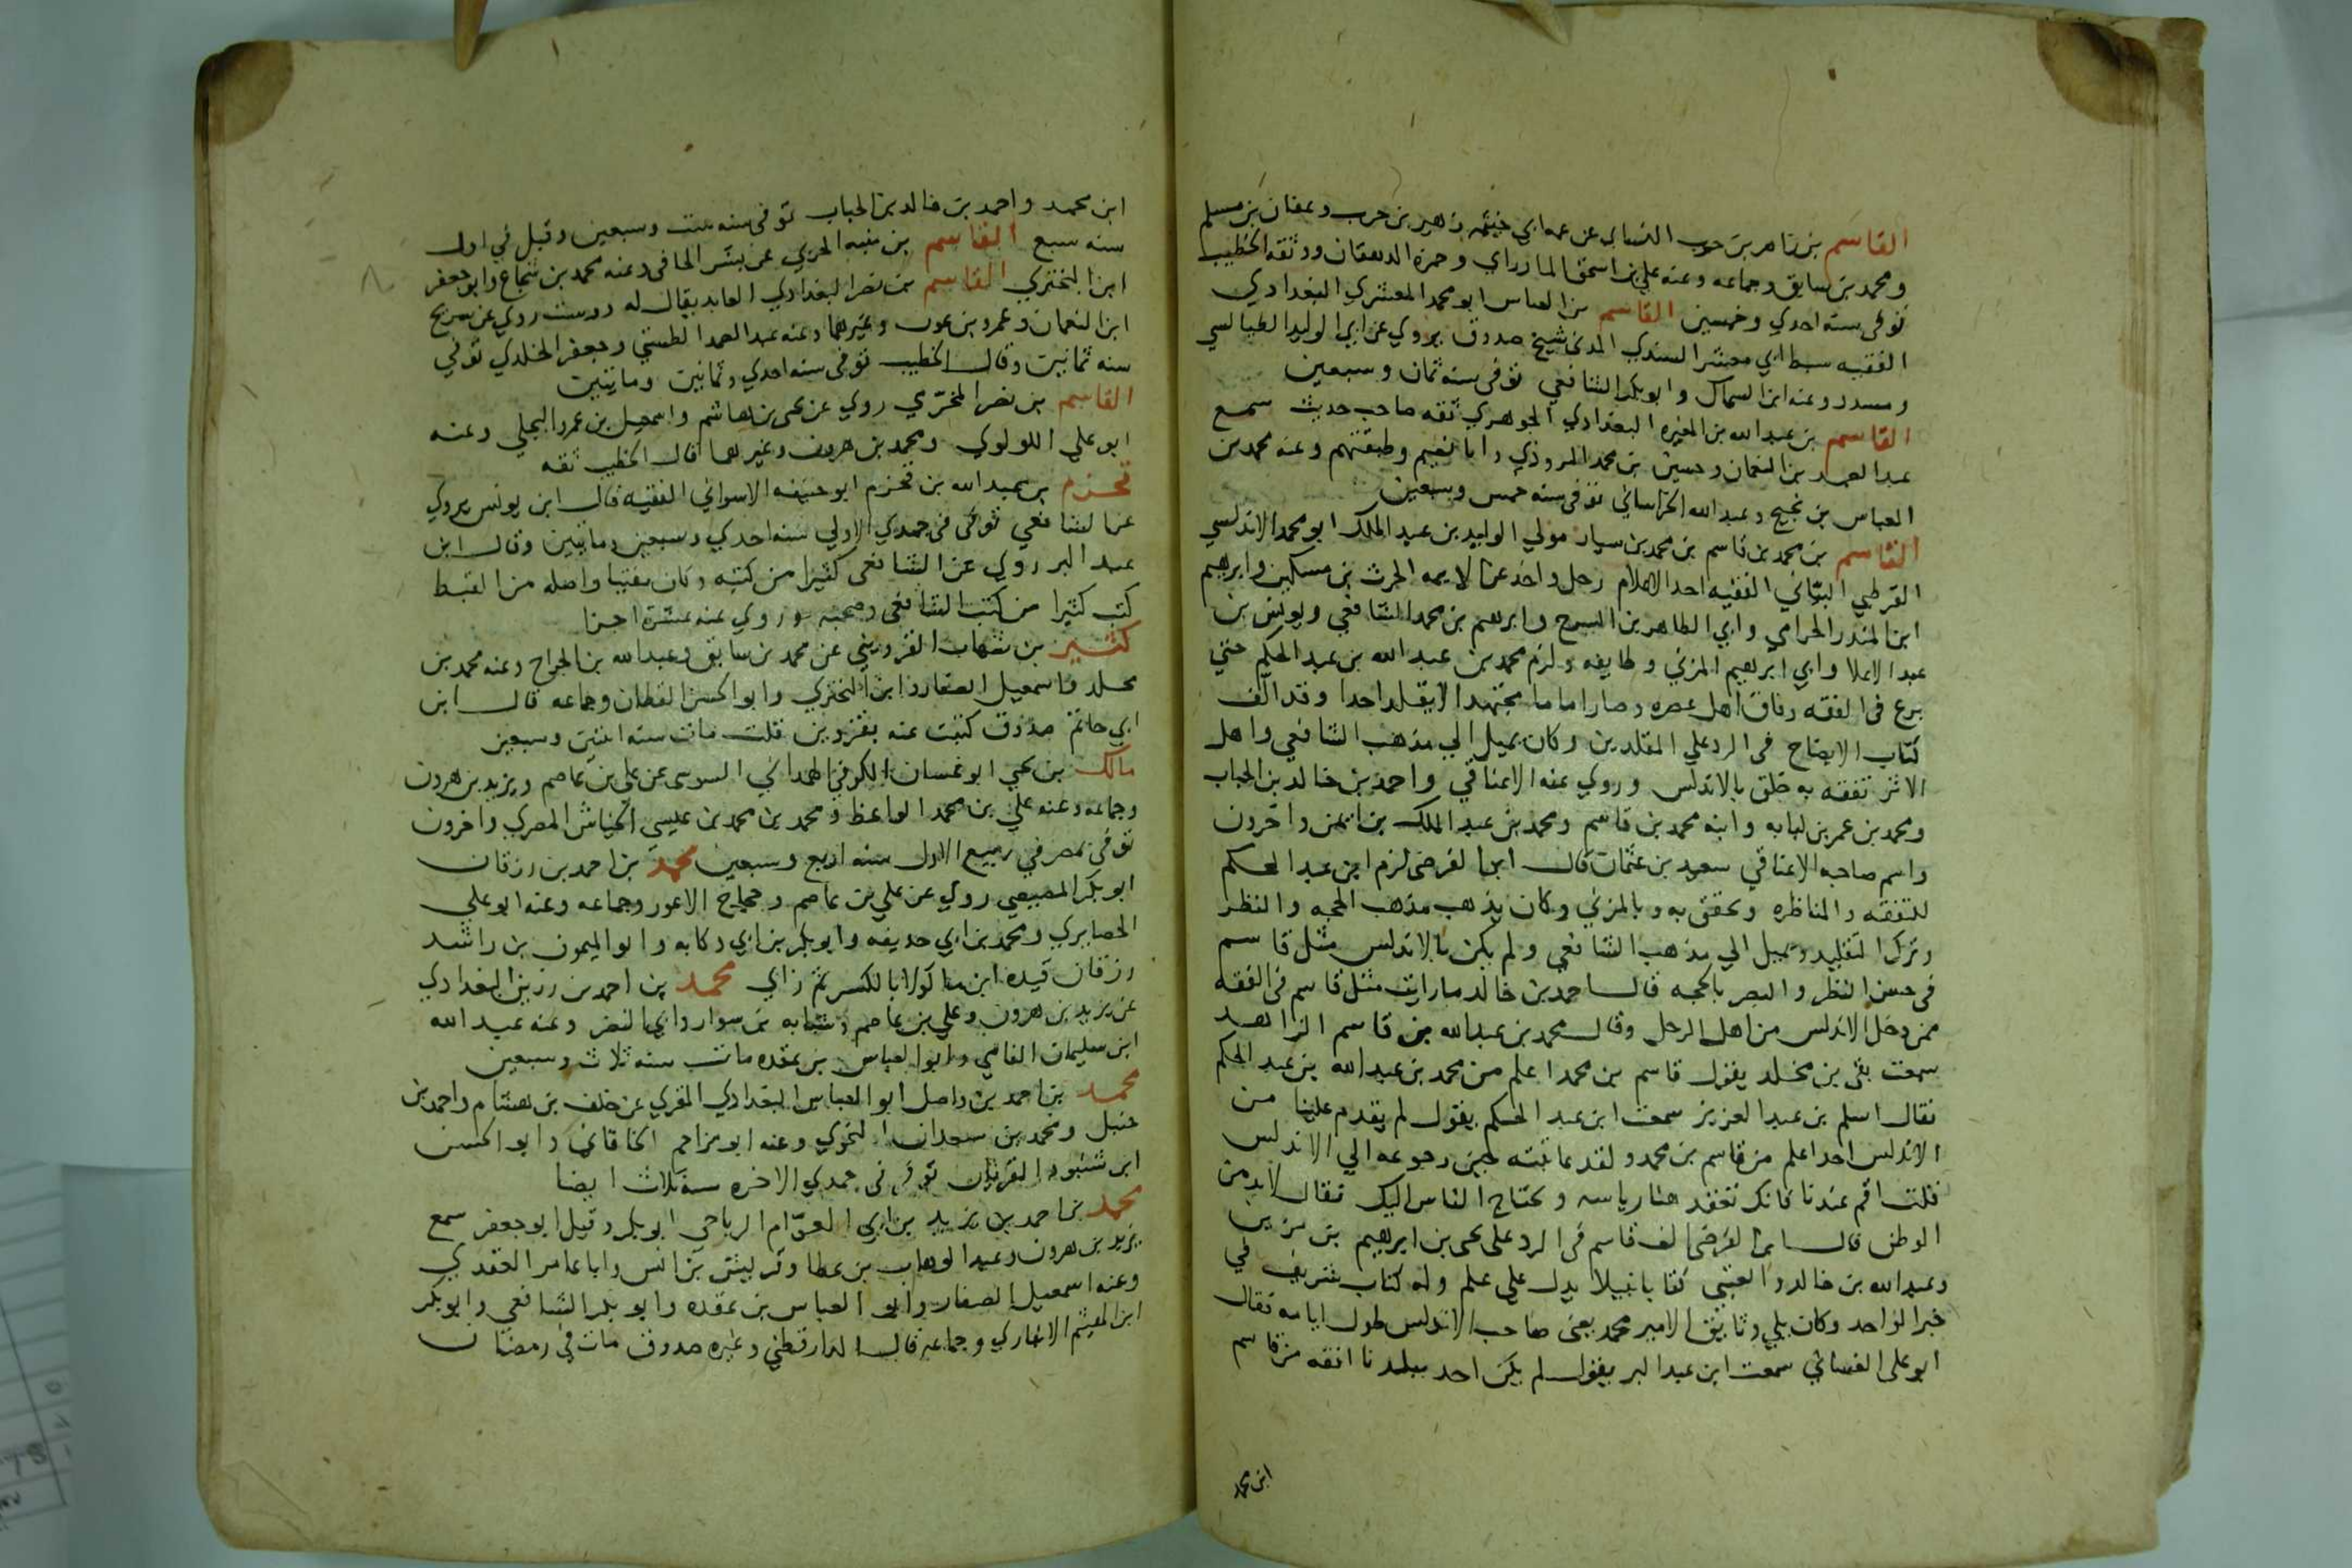 القاسم بن زاهر بن حرب النسائي عن عمه ابي خيثمه زهير بن حرب وعفان بن مسلم
ومحمد بن سابق وجماعه وعنه علي بن اسحق المازراي وحمزه الدهقان ووثقه الخطيب
توفي سنه احدي وخمسين القاسم بن العباس ابو محمد المعشري البغدادي
الفقيه سبط ابي معشر السندي المدني شيخ صدوق يروي عن ابي الوليد الطيالسي
ومسدد وعنه ابن السماك وابو بكر الشافعي توفي سنه ثمان وسبعين
القاسم بن عبد الله بن المغيره البغدادي الجوهري ثقه صاحب حديث سمع
عبد الصمد بن النعمان وحسين بن محمد المروذي وابا نعيم وطبقتهم وعنه محمد بن
العباس بن نجيح وعبد الله الخراساني توفي سنه خمس وسبعين
القاسم بن محمد بن قاسم بن محمد بن سيار مولي الوليد بن عبد الملك ابو محمد الاندلسي
القرطبي البياني الفقيه احد الاعلام رحل واخذ عن الايمه الحرث بن مسكين وابرهيم
ابن المنذر الحزامي وابي الطاهر بن السرح وابرهيم بن محمد الشافعي ويونس بن
عبد الاعلا وابي ابرهيم المزني وطايفه ولزم محمد بن عبد الله بن عبد الحكم حتي
برع في الفقه وفاق اهل عصره وصار اماما مجتهدا لا يقلد احدا وقد الف
كتاب الايضاح في الرد علي المقلدين وكان يميل الي مذهب الشافعي واهل
الاثر تفقه به خلق بالاندلس وروي عنه الاعناقي واحمد بن خالد بن الجباب
ومحمد بن عمر بن لبابه وابنه محمد بن قاسم ومحمد بن عبد الملك بن ايمن واخرون
واسم صاحبه الاعناقي سعيد بن عثمان قال ابن الفرضي لزم ابن عبد الحكم
للتفقه والمناظره وتحقق به وبالمزني وكان يذهب مذهب الحجه والنظر
وترك التقليد ويميل الي مذهب الشافعي ولم يكن بالاندلس مثل قاسم
في حسن النظر والبصر بالحجه قال احمد بن خالد ما رايت مثل قاسم في الفقه
ممن دخل الاندلس من اهل الرحل وقال محمد بن عبد الله بن قاسم الزاهد
سمعت بقي بن مخلد يقول قاسم بن محمد اعلم من محمد بن عبد الله بن عبد الحكم
فقال اسلم بن عبد العزيز سمعت ابن عبد الحكم يقول لم يقدم علينا من
الاندلس احد اعلم من قاسم بن محمد ولقد عاتبته حين رجوعه الي الاندلس
قلت اقم عندنا فانك تعقد هنا رياسه ويحتاج الناس اليك فقال لا بد من
الوطن قال ابن الفرضي الف قاسم في الرد علي يحي بن ابرهيم بن مزين
وعبد الله بن خالد والعتبي كتابا نبيلا يدل علي علم وله كتاب شريف في
خبر الواحد وكان يلي وثايق الامير محمد يعني صاحب الاندلس طول ايامه فقال
ابو علي الغساني سمعت ابن عبد البر يقول لم يكن احد ببلدنا افقه من قاسم
ابن محمد
ابن محمد واحمد بن خالد بن الجباب توفي سنه ست وسبعين وقيل في اول
سنه سبع القاسم بن منبه الحربي عن بشر الحافي وعنه محمد بن شجاع وابو جعفر
ابن البختري القاسم بن نصر البغدادي العابد يقال له دوست روي عن سريج
ابن النعمان وعمرو بن عون وغيرهما وعنه عبد الصمد الطستي وجعفر الخلدي توفي
سنه ثمانين وقال الخطيب توفي سنه احدي وثمانين ومايتين
القاسم بن نصر المخرمي روي عن يحي بن هاشم واسمعيل بن عمرو البجلي وعنه
ابو علي اللولوي ومحمد بن هرون وغيرهما قال الخطيب ثقه
قحزم بن عبد الله بن قحزم ابو حنيفه الاسواني الفقيه قال ابن يونس يروي
عن الشافعي توفي في جمدي الاولي سنه احدي وسبعين ومايتين وقال ابن
عبد البر روي عن الشافعي كثيرا من كتبه وكان مفتيا واصله من القبط
كتب كثيرا من كتب الشافعي وصحبه وروي عنه عشرة اجزا
كثير بن شهاب القزويني عن محمد بن سابق وعبد الله بن الجراح وعنه محمد بن
مخلد واسمعيل الصفار وابن البختري وابو الحسن القطان وجماعه قال ابن
ابي حاتم صدوق كتبت عنه بقزوين قلت مات سنه اثنين وسبعين
مالك بن يحي ابو غسان الكوفي الهمداني السوسي عن علي بن عاصم ويزيد بن هرون
وجماعه وعنه علي بن محمد الواعظ ومحمد بن محمد بن عيسي الخياش المصري واخرون
توفي بمصر في ربيع الاول سنه اربع وسبعين محمد بن احمد بن رزقان
ابو بكر المصيصي روي عن علي بن عاصم وحجاج الاعور وجماعه وعنه ابو علي
الحصايري ومحمد بن ابي حذيفه وابو بكر بن ابي دكانه وابو الميمون بن راشد
رزقان قيده ابن ماكولا بالكسر ثم زاي محمد بن احمد بن رزين البغدادي
عن يزيد بن هرون وعلي بن عاصم وشبابه بن سوار وابي النضر وعنه عبد الله
ابن سليمان الفامي وابو العباس بن عقده مات سنه ثلاث وسبعين
محمد بن احمد بن واصل ابو العباس البغدادي المقري عن خلف بن هشام واحمد بن
حنبل ومحمد بن سعدان النحوي وعنه ابو مزاحم الخاقاني وابو الحسن
ابن شنبوذ المقريان توفي في جمدي الاخره سنه ثلاث ايضا
محمد بن احمد بن يزيد بن ابي العوام الرياحي ابو بكر وقيل ابو جعفر سمع
يزيد بن هرون وعبد الوهاب بن عطا وقريش بن انس وابا عامر العقدي
وعنه اسمعيل الصفار وابو العباس بن عقده وابو بكر الشافعي وابو بكر
ابن الهيثم الانباري وجماعه قال الدارقطني وغيره صدوق مات في رمضان